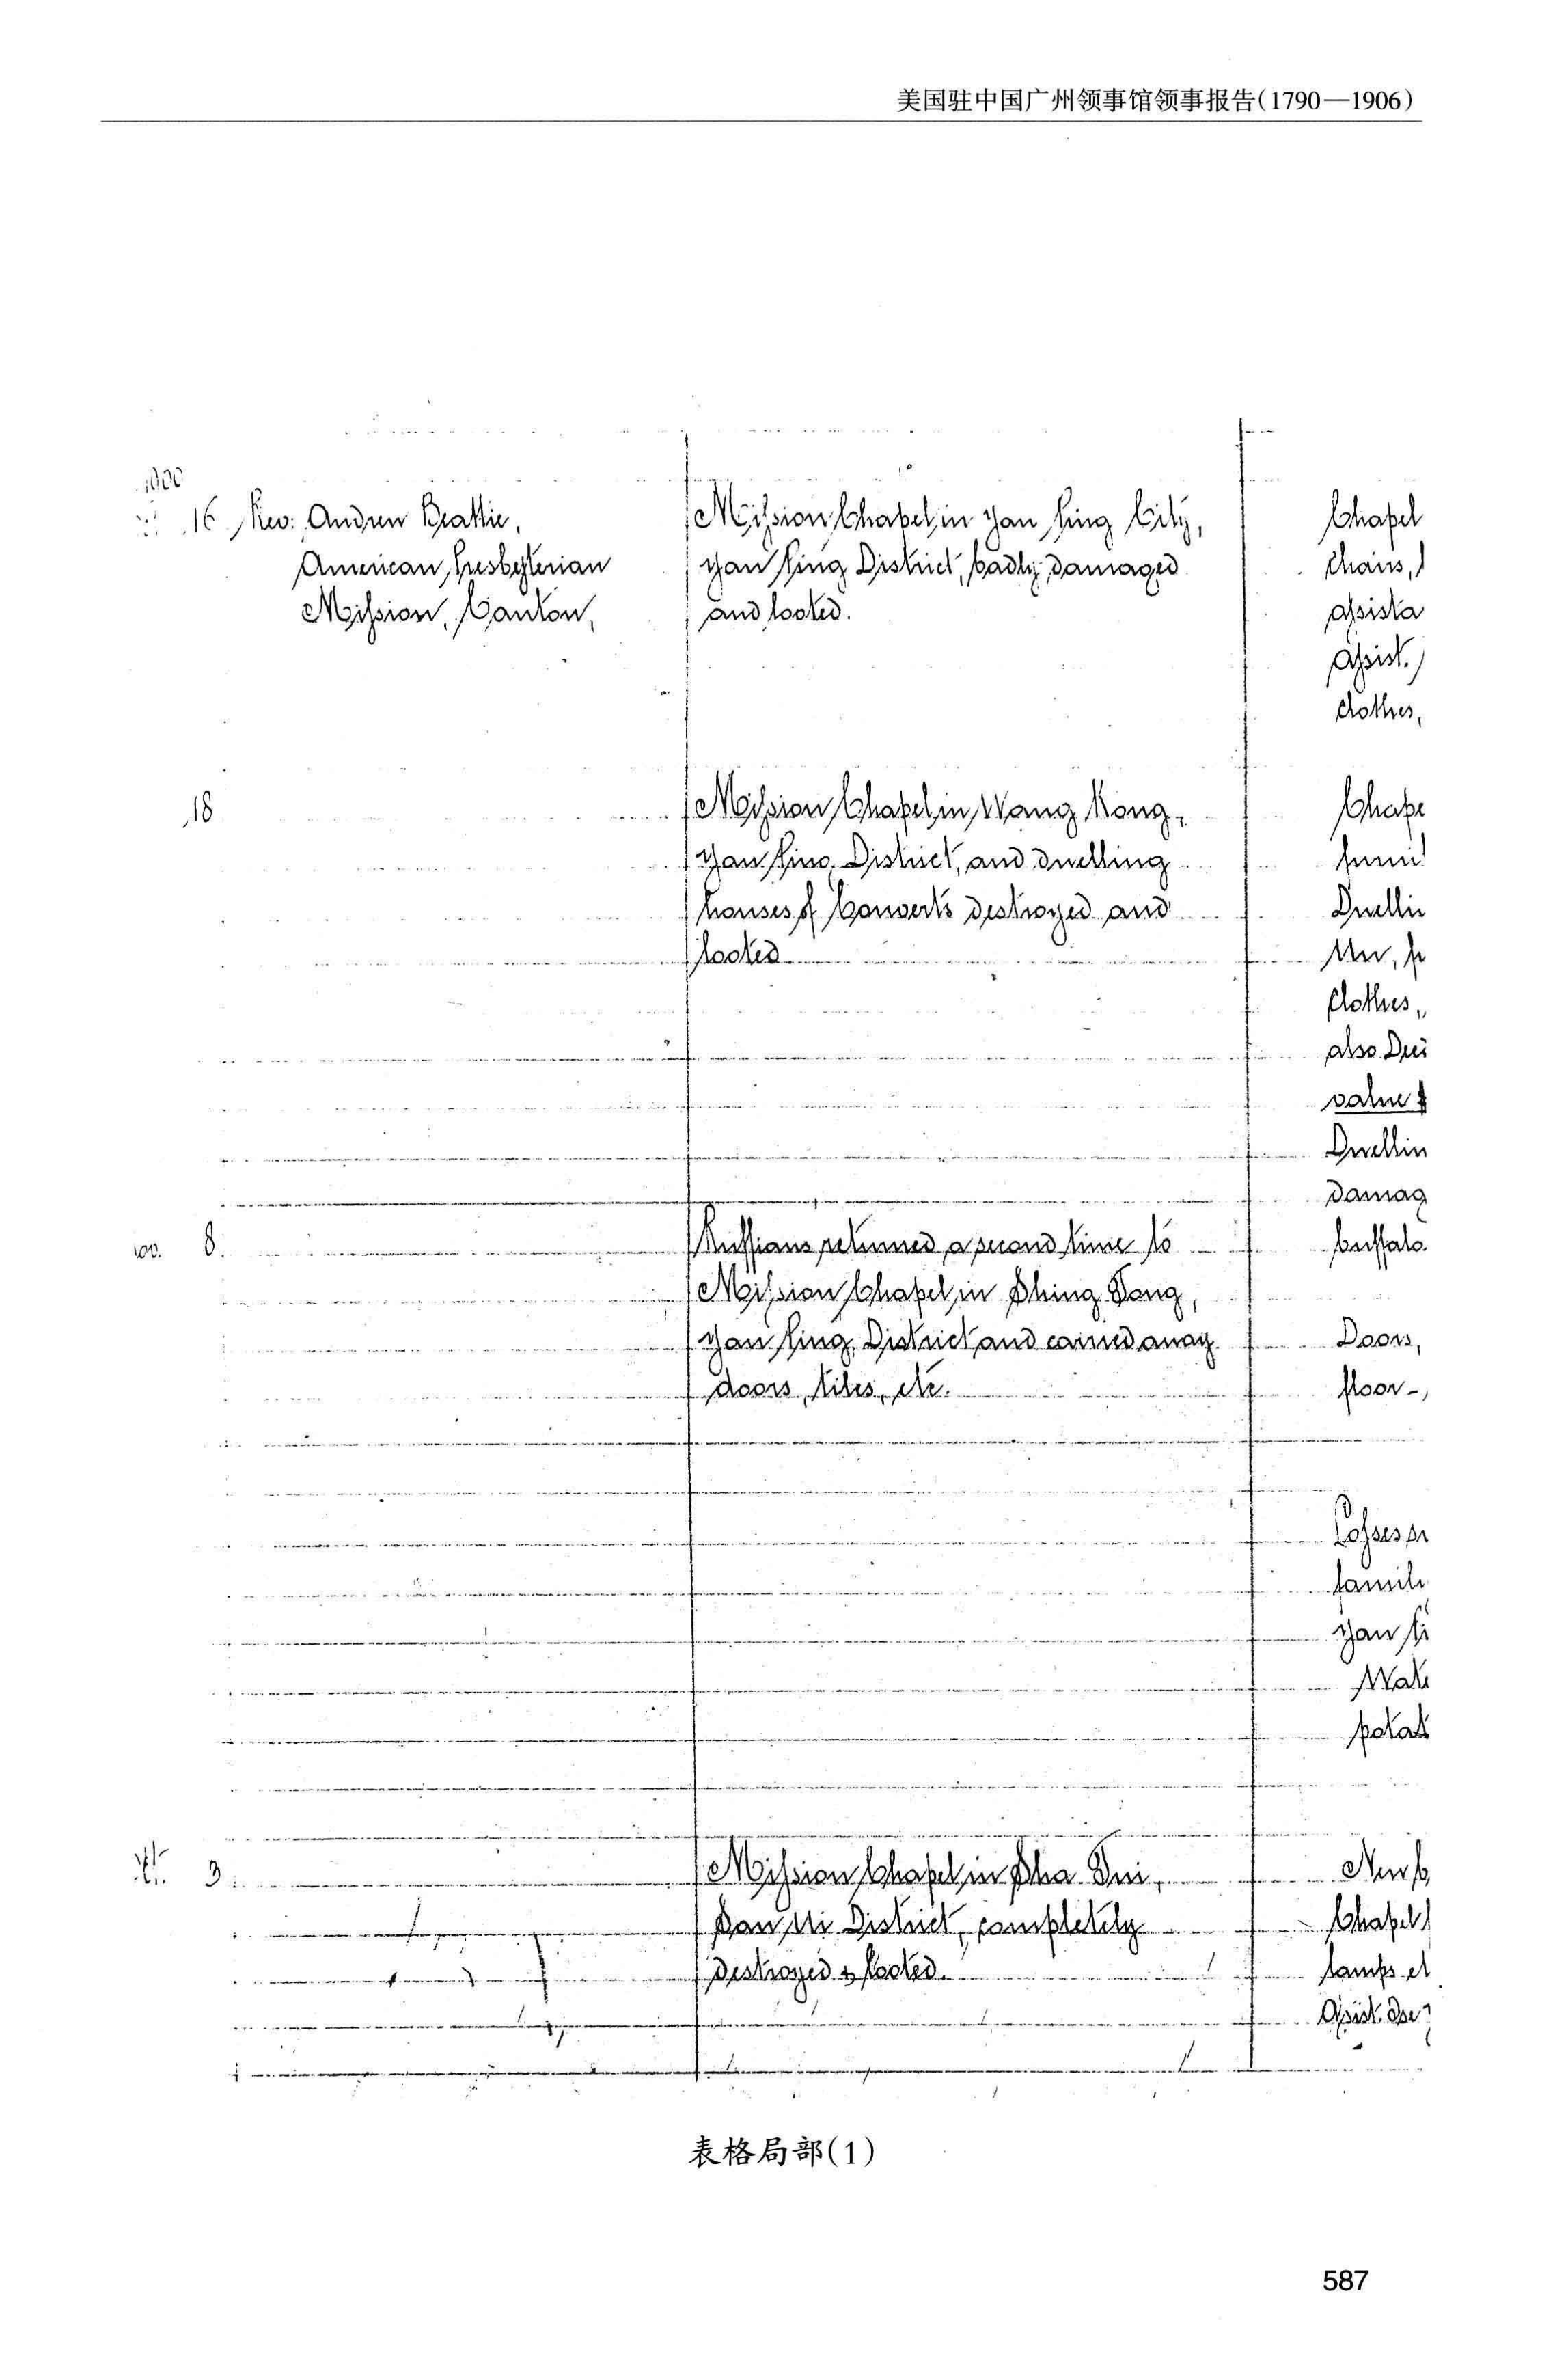 美国驻中国广州领事馆领事报告(1790—1906)
1900
16 Rev: Andrew Beattie,
American Presbyterian
Mission, Canton,
Mission Chapel, in Yan Ping City,
Yan Ping District, badly damaged
and looted.
Chapel
Chairs,
assista
Assist.
clothes,
18
Mission Chapel, in Wang Kong,
Yan Ping District, and dwelling
houses of Converts destroyed and
looted
Chape
furni
Dwellin
clothes,
also
value $
Dwellin
damag
buffalo
8.
Ruffians returned a second time to
Mission Chapel, in Shing Tong,
Yan Ping District and carried away
doors, tiles, etc.
Doors,
floor-
Losses
famili
Yan Pi
potat
3
Mission Chapel, in Sha Tui,
San Ui District, completely
destroyed & looted.
Chapel
lamps et
Assist.
表格局部(1)
587